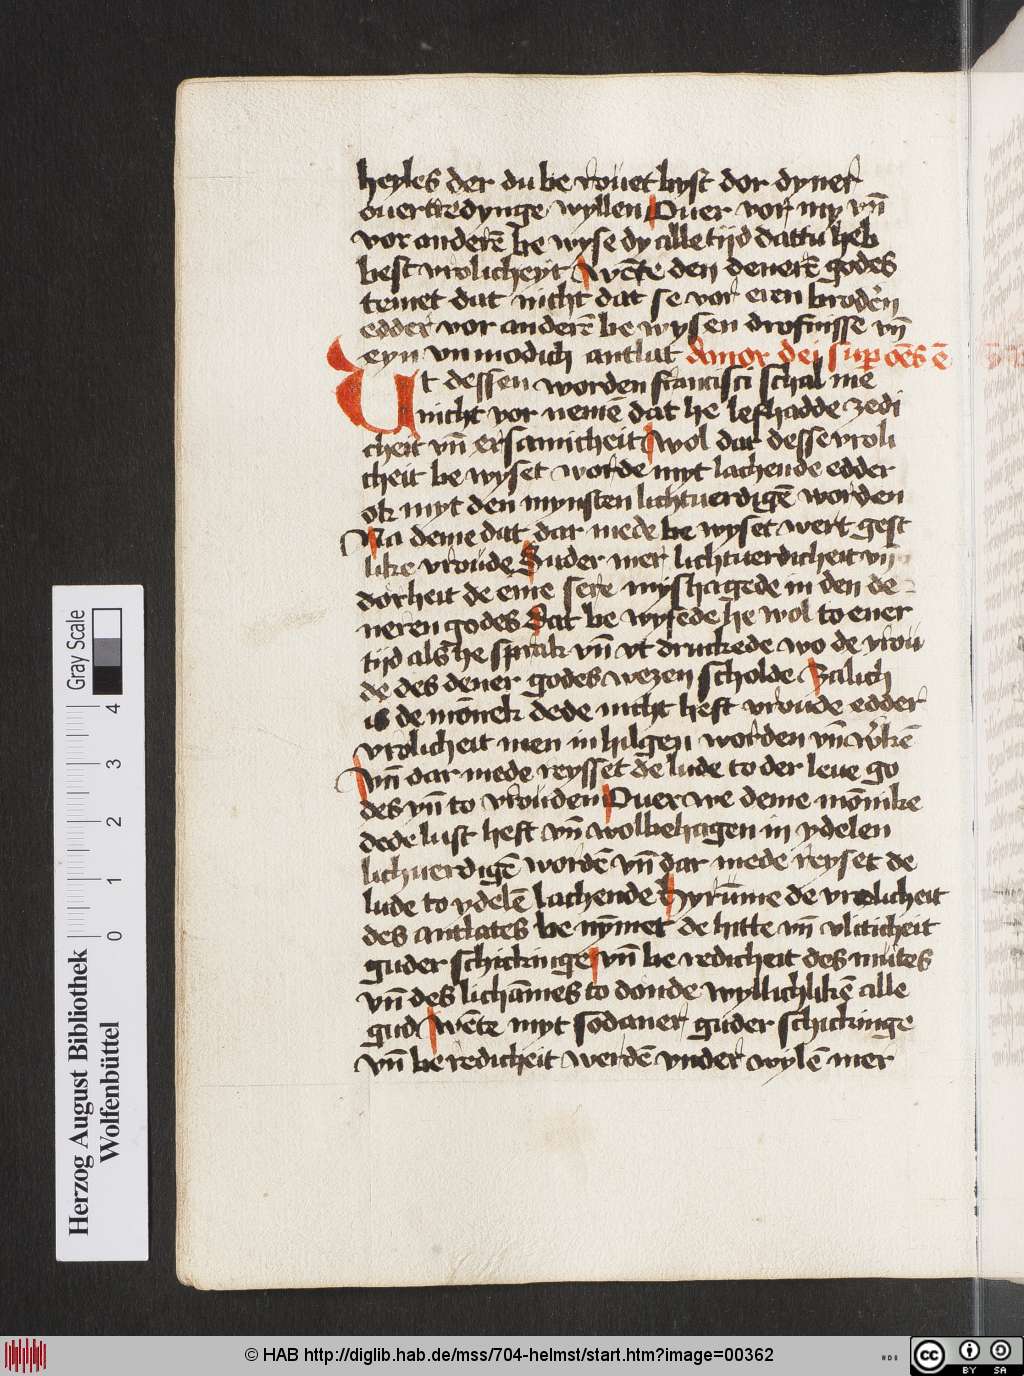 heyles der du be rouet byst dor dyner
ouertredynge wyllen Ouer vor my vn̄
vor anderē be wyse dy alle tijd dattu heb
best vrolicheyt Wēte den denerē godes
temet dat nicht dat se vor eren broderen
edder vor anderē be wysen drofnisse vn̄
eyn vnmodich antlat Amor dei sup oēs ē
Ut dessen worden francisci schal me
nicht vor nemē dat he lefhadde zedi
cheit vn̄ ersamicheit Wol dat desse vroli
cheit be wyset worde myt lachende edder
ok myt den mynsten lichtuerdigē worden
Na deme dat dar mede be wyset wert gest
like vroude Sunder mer lichtuerdicheit vn̄
dorheit de eme sere myshagede in den de
neren godes Dat be wysede he wol to ener
tijd als he sprak vn̄ vt druckede wo de vrou
de des dener godes wezen scholde Salich
is de mōnek dede nicht heft vroude edder
vrolicheit men in hilgen worden vn̄ w̄kē
Vn̄ dar mede reysset de lude to der leue go
des vn̄ to vrouden Ouer we deme mōnike
dede lust heft vn̄ wolbehagen in ydelen
lichuerdigē wordē vn̄ dar mede reyset de
lude to ydelē lachende Hyrūme de vrolicheit
des antlates be nȳmet de hitte vn̄ vliticheit
guder schickinge vn̄ be redicheit des mutes
vn̄ des lichāmes to donde wyllichlikē alle
gud Wēte myt sodaner guder schickinge
vn̄ be redicheit werdē vnder wylē mer
Gray Scale
0 1 2 3 4
Herzog August Bibliothek
Wolfenbüttel
© HAB http://diglib.hab.de/mss/704-helmst/start.htm?image=00362
cc BY SA